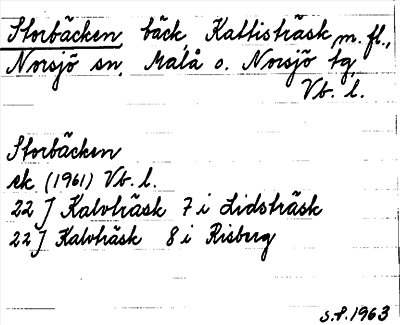 Storbäcken, bäck, Kattisträsk m. fl.,
Norsjö sn, Malå o. Norsjö tg,
Vb. l.
Storbäcken
ek (1961) Vb. l.
22 J Kalvträsk 7 i Lidsträsk
22 J Kalvträsk 8 i Risberg
S.P. 1963